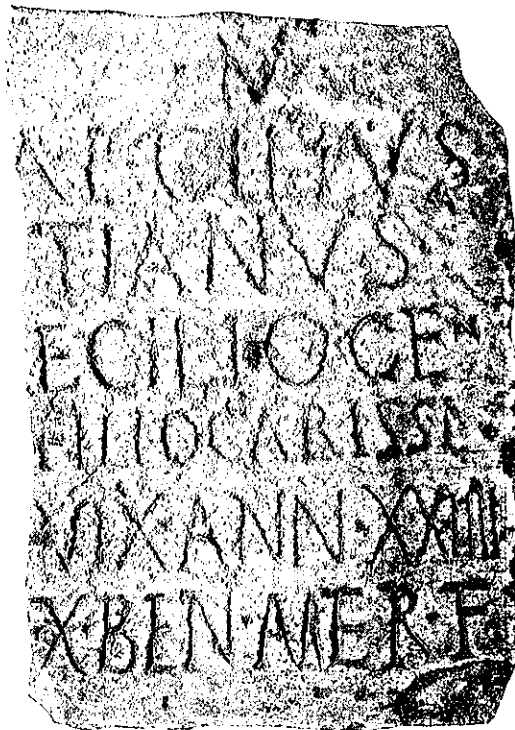 M
CILIVS
TIANVS
ECILIO GE
FILIO CARISSI
VIX ANN XXIIII
X BEN MER F